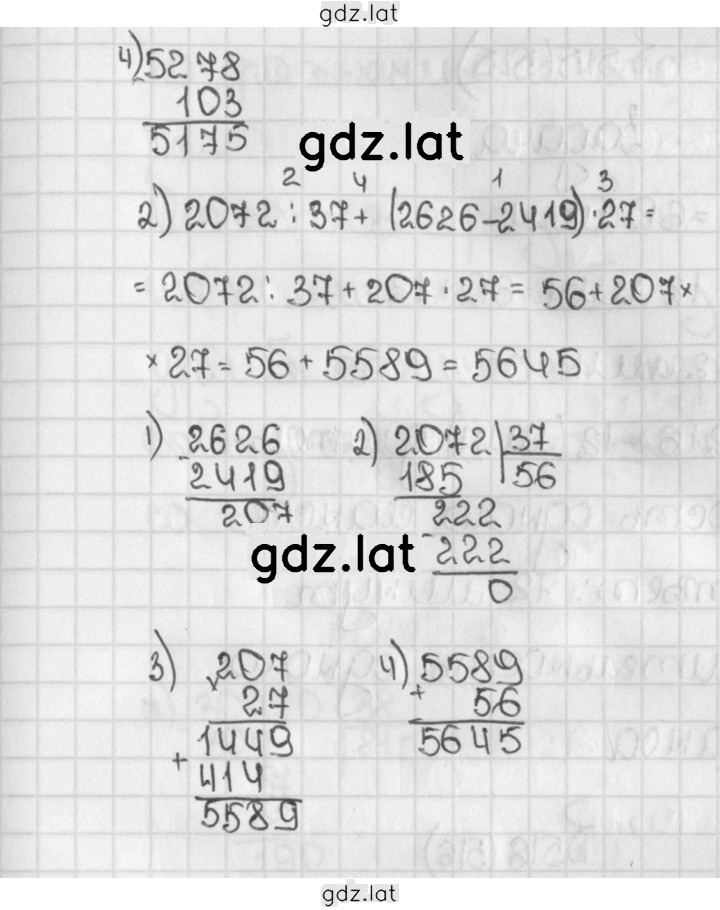 gdz.lat
4) 5278
103
5175
gdz.lat
2 4 1 3
2) 2072 : 37 + (2626 - 2419) · 27 =
= 2072 : 37 + 207 · 27 = 56 + 207 ×
× 27 = 56 + 5589 = 5645
1) 2626 2) 2072 37
- 2419 185 56
207 222
gdz.lat - 222
0
3) 207 4) 5589
× 27 + 56
1449 5645
+ 414
5589
gdz.lat